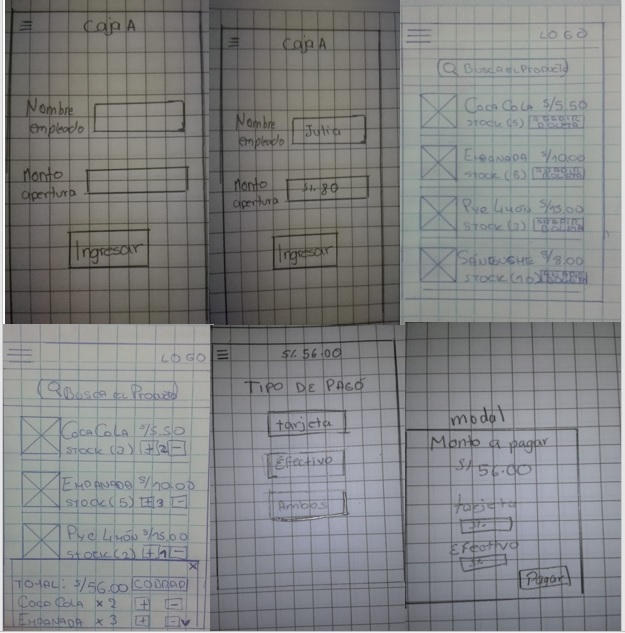 Caja A
Nombre
empleado
Monto
apertura
Ingresar
Caja A
Nombre
empleado
Julia
Monto
apertura
S/. 80
Ingresar
LOGO
Busca el Producto
Coca Cola S/5.50
Stock (5)
Empanada S/10.00
Pye Limón S/15.00
S/8.00
Stock (10)
LOGO
Busca el Producto
Coca Cola S/5.50
+ 2 -
Empanada S/10.00
Stock (5) + 3 -
Pye Limón S/15.00
Stock (2) + 1 -
x
TOTAL: S/56.00 COBRAR
Coca Cola x 2 + -
Empanada x 3 + -
S/. 56.00
TIPO DE PAGO
tarjeta
Efectivo
Ambos
modal
Monto a pagar
S/ 56.00
tarjeta
S/.
Efectivo
S/.
Pagar